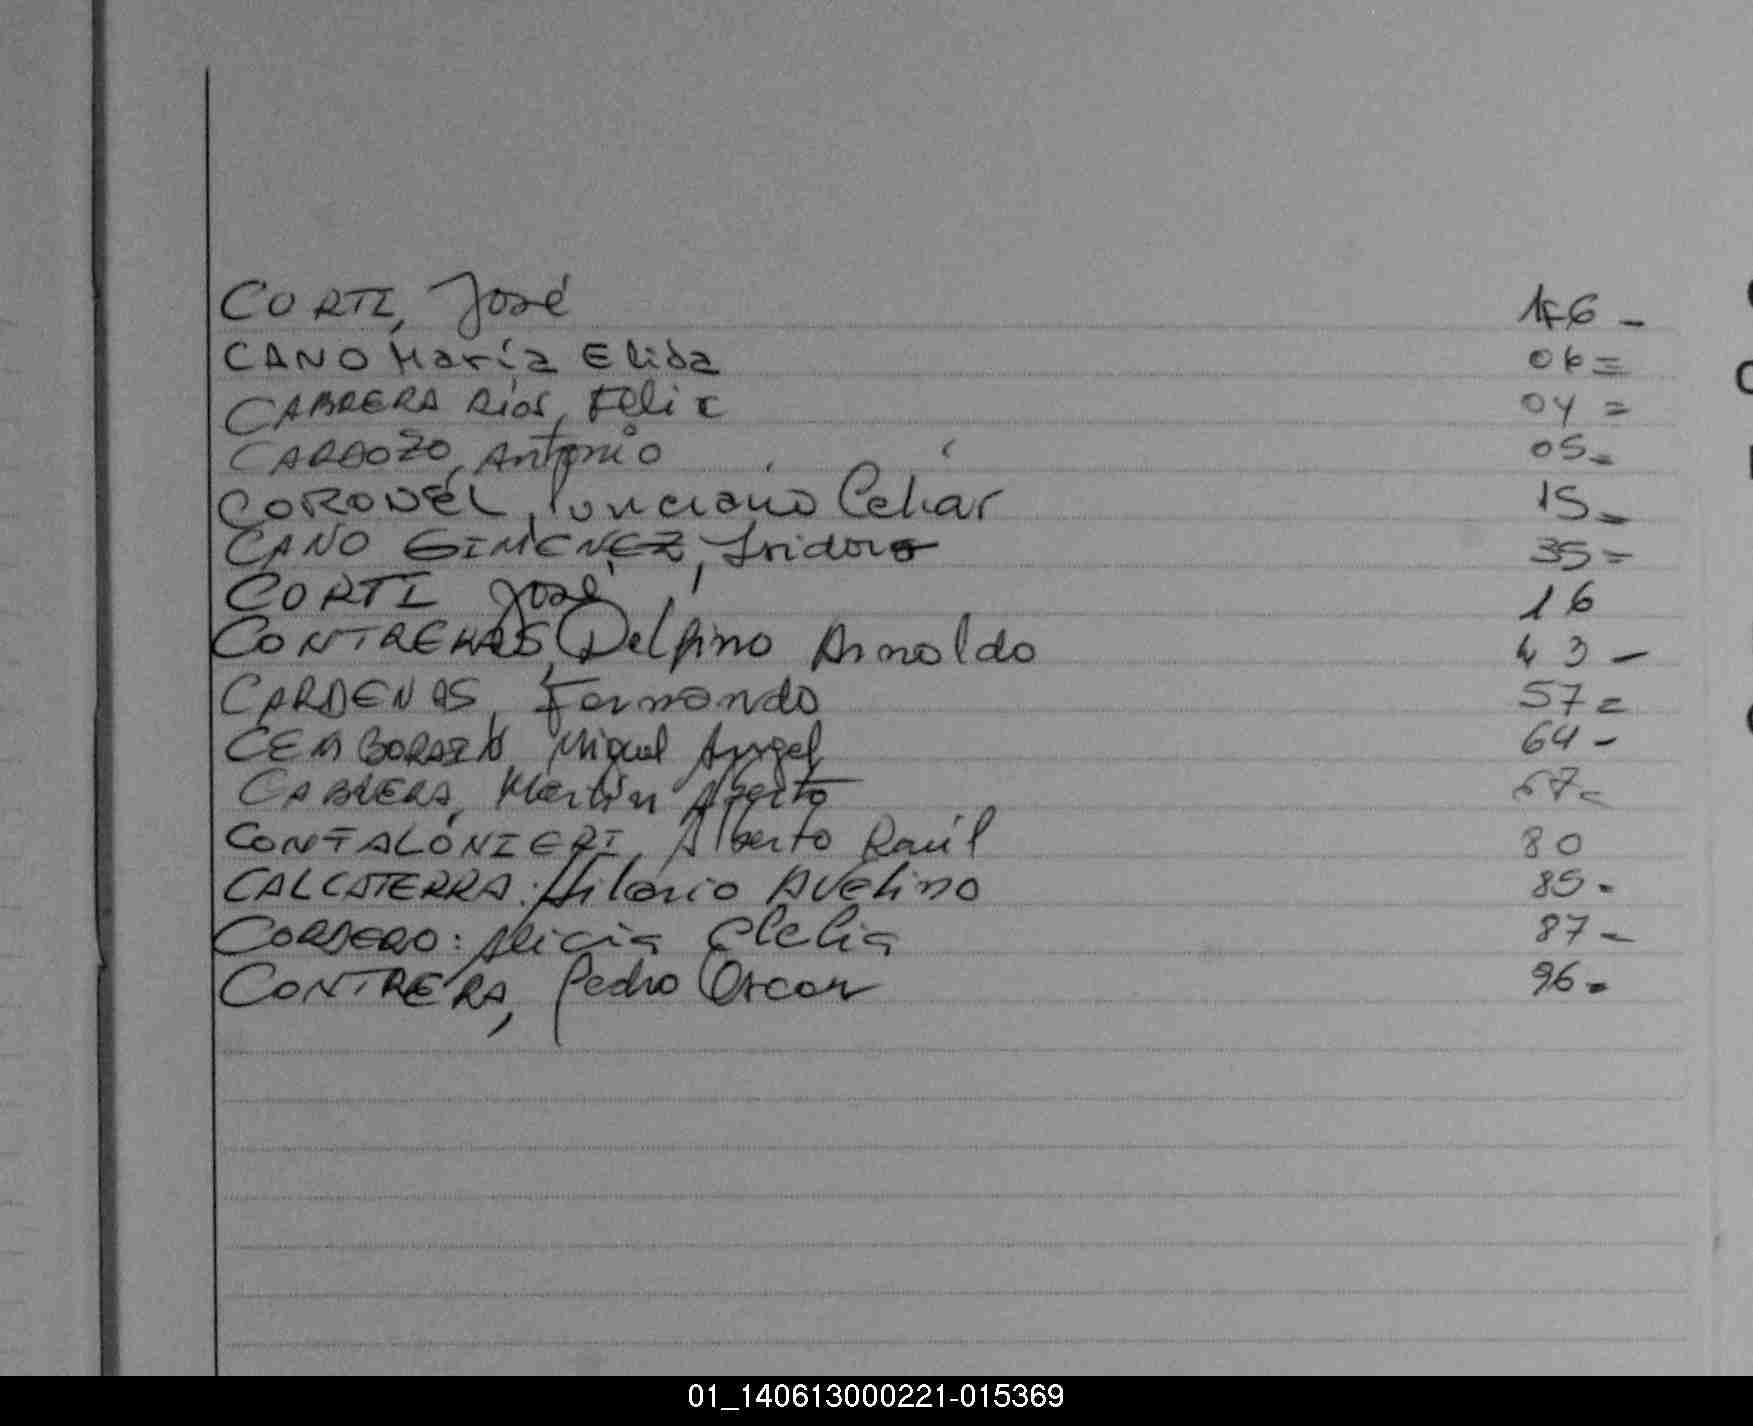 CORTI, José 16 -
CANO María Elida 06 =
CABRERA Ríos, Felix 04 =
CARDOZO, Antonio 05 -
CORONEL, Ponciano Celiar 15 -
CANO GIMENEZ, Isidoro 35 =
CORTI, José 16
CONTRERAS, Delfino Arnoldo 43 -
CARDENAS, Fernando 57 =
Miguel Angel 64 -
CABRERA, Martín Alberto 67 -
CONFALONIERI, Alberto Raúl 80
CALCATERRA: Hilario Avelino 85 -
CORDERO: Alicia Clelia 87 -
CONTRERA, Pedro Oscar 96 -
01_140613000221-015369